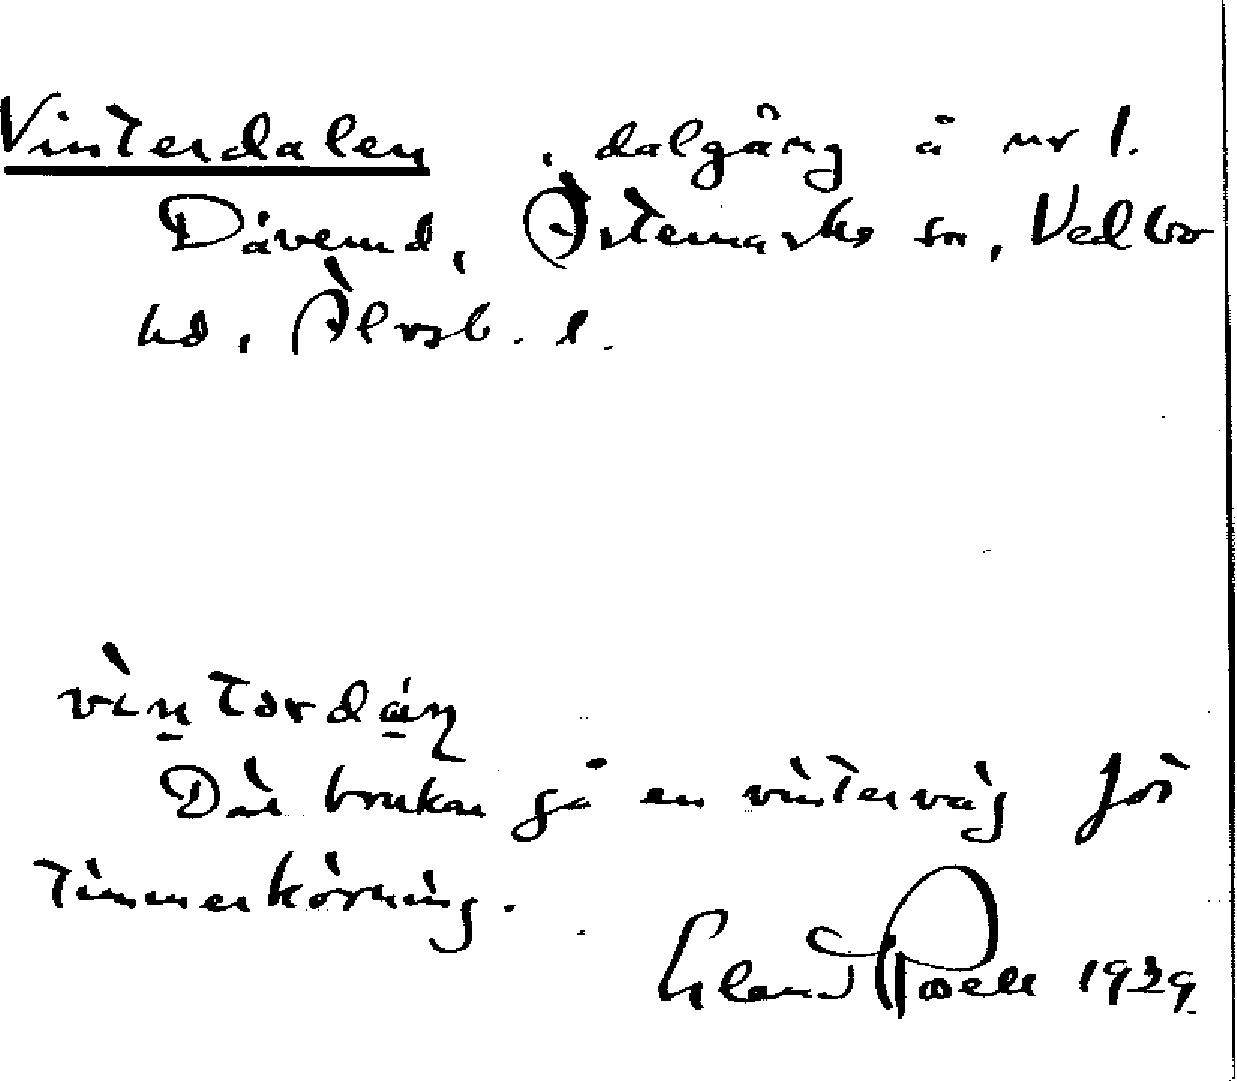 Vinterdalen, dalgång å nr 1.
Dåverud, Ärtemarks sn, Vedbo
hd, Älvsb. l.
Där brukar gå en vinterväg för
timmerkörning.
Erland Rosell 1939